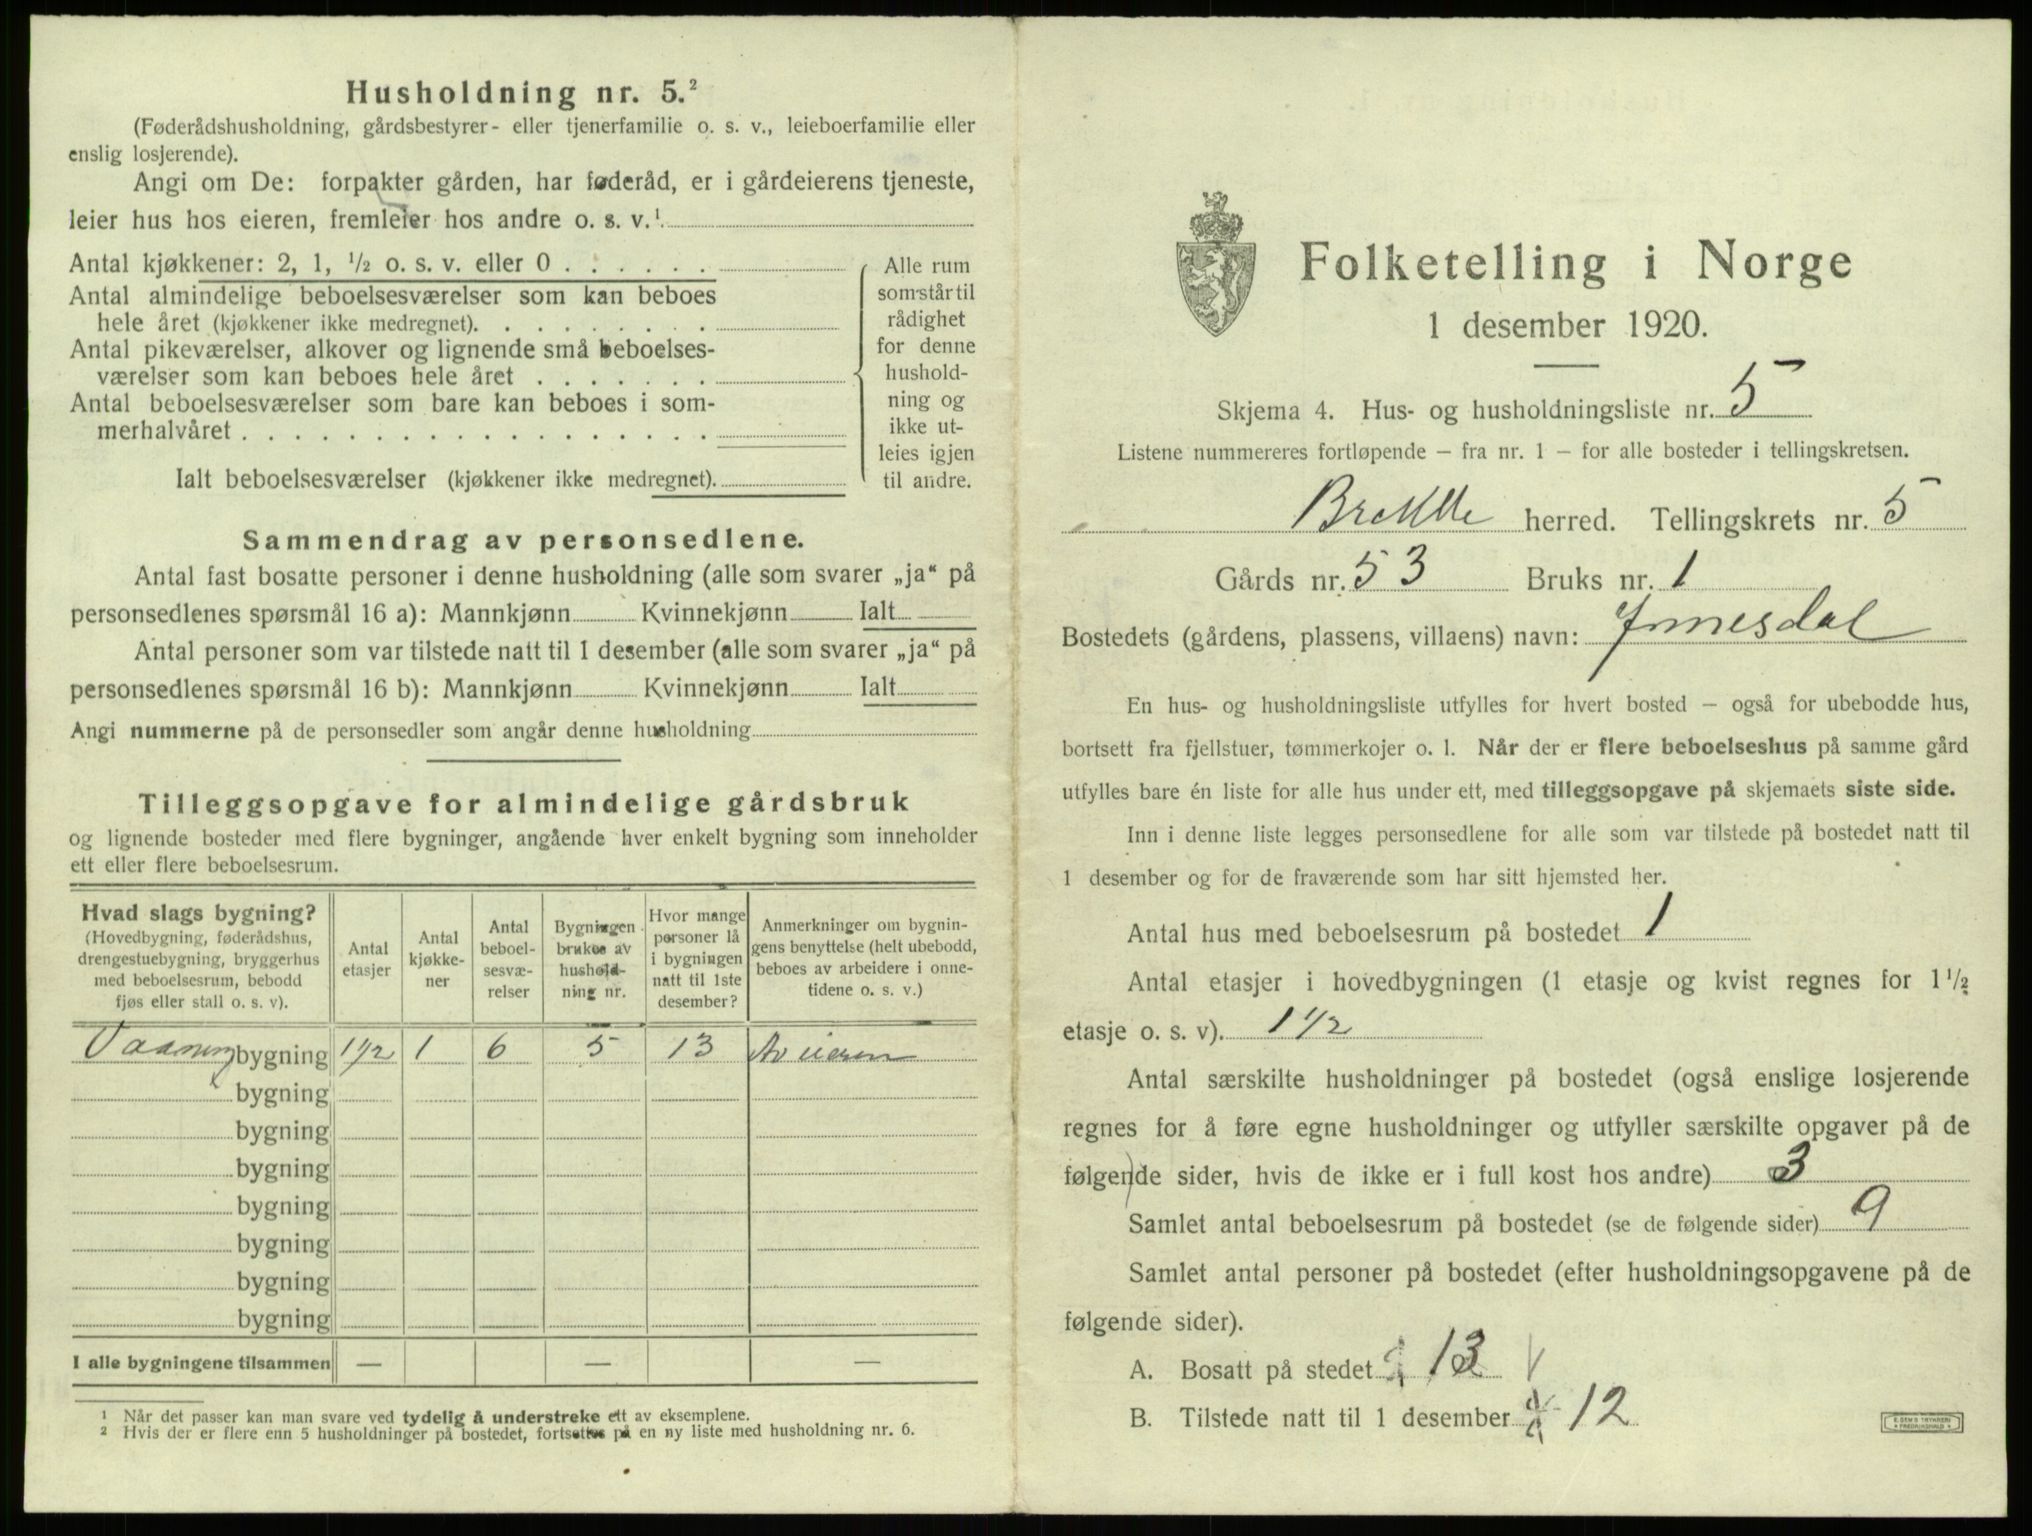 Husholdning nr. 5.²
(Føderådshusholdning, gårdsbestyrer- eller tjenerfamilie o. s. v., leieboerfamilie eller
enslig losjerende).
Angi om De: forpakter gården, har føderåd, er i gårdeierens tjeneste,
leier hus hos eieren, fremleier hos andre o. s. v.¹
Antal kjøkkener: 2, 1, ½ o. s. v. eller 0 . . . . . .
Antal almindelige beboelsesværelser som kan beboes
hele året (kjøkkener ikke medregnet). . . . . . . . .
Antal pikeværelser, alkover og lignende små beboelses-
værelser som kan beboes hele året . . . . . . .
Antal beboelsesværelser som bare kan beboes i som-
merhalvåret . . . . . . . . . . . . . . . . . .
Ialt beboelsesværelser (kjøkkener ikke medregnet).
Alle rum
som står til
rådighet
for denne
hushold-
ning og
ikke ut-
leies igjen
til andre.
Sammendrag av personsedlene.
Antal fast bosatte personer i denne husholdning (alle som svarer „ja“ på
personsedlenes spørsmål 16 a): Mannkjønn Kvinnekjønn Ialt
Antal personer som var tilstede natt til 1 desember (alle som svarer „ja“ på
personsedlenes spørsmål 16 b): Mannkjønn Kvinnekjønn Ialt
Angi nummerne på de personsedler som angår denne husholdning
Tilleggsopgave for almindelige gårdsbruk
og lignende bosteder med flere bygninger, angående hver enkelt bygning som inneholder
ett eller flere beboelsesrum.
Hvad slags bygning?
(Hovedbygning, føderådshus,
drengestuebygning, bryggerhus
med beboelsesrum, bebodd
fjøs eller stall o. s. v).
Antal
etasjer
Antal
kjøkke-
ner
Antal
beboel-
sesvæ-
relser
Bygningen
brukes av
hushold-
ning nr.
Hvor mange
personer lå
i bygningen
natt til 1ste
desember?
Anmerkninger om bygnin-
gens benyttelse (helt ubebodd,
beboes av arbeidere i onne-
tidene o. s. v.)
Vaaning bygning 1½ 1 6 5 13 Av eieren
bygning
bygning
bygning
bygning
bygning
bygning
bygning
I alle bygningene tilsammen — — —
¹ Når det passer kan man svare ved tydelig å understreke ett av eksemplene.
² Hvis der er flere enn 5 husholdninger på bostedet, fortsettes på en ny liste med husholdning nr. 6.
Folketelling i Norge
1 desember 1920.
Skjema 4. Hus- og husholdningsliste nr. 5
Listene nummereres fortløpende – fra nr. 1 – for alle bosteder i tellingskretsen.
Brekke herred. Tellingskrets nr. 5
Gårds nr. 53 Bruks nr. 1
Bostedets (gårdens, plassens, villaens) navn:
En hus- og husholdningsliste utfylles for hvert bosted – også for ubebodde hus,
bortsett fra fjellstuer, tømmerkojer o. l. Når der er flere beboelseshus på samme gård
utfylles bare én liste for alle hus under ett, med tilleggsopgave på skjemaets siste side.
Inn i denne liste legges personsedlene for alle som var tilstede på bostedet natt til
1 desember og for de fraværende som har sitt hjemsted her.
Antal hus med beboelsesrum på bostedet 1
Antal etasjer i hovedbygningen (1 etasje og kvist regnes for 1½
etasje o. s. v). 1½
Antal særskilte husholdninger på bostedet (også enslige losjerende
regnes for å føre egne husholdninger og utfyller særskilte opgaver på de
følgende sider, hvis de ikke er i full kost hos andre) 3
Samlet antal beboelsesrum på bostedet (se de følgende sider) 9
Samlet antal personer på bostedet (efter husholdningsopgavene på de
følgende sider).
A. Bosatt på stedet 13
B. Tilstede natt til 1 desember 12